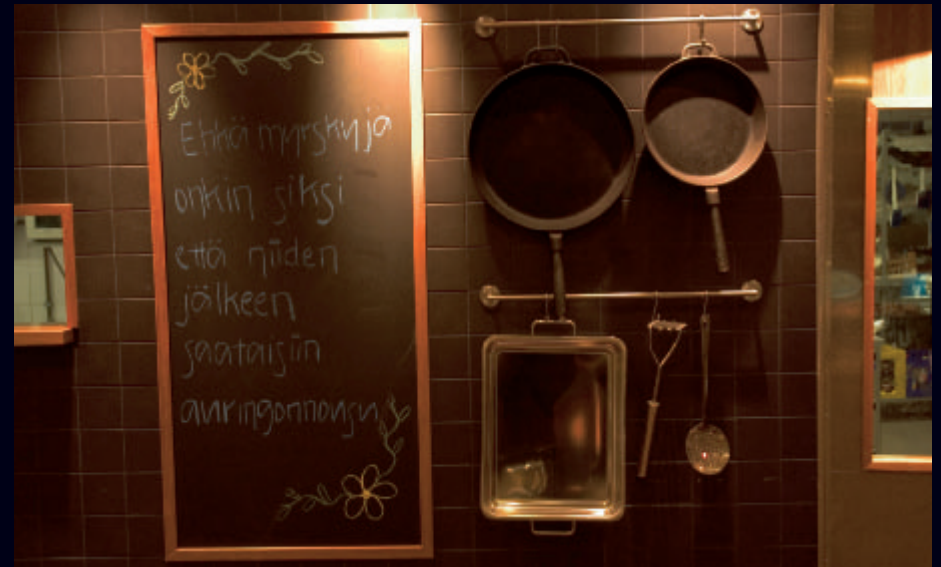 Ehkä myrskyjä
onkin siksi
että niiden
jälkeen
saataisiin
auringonnousu